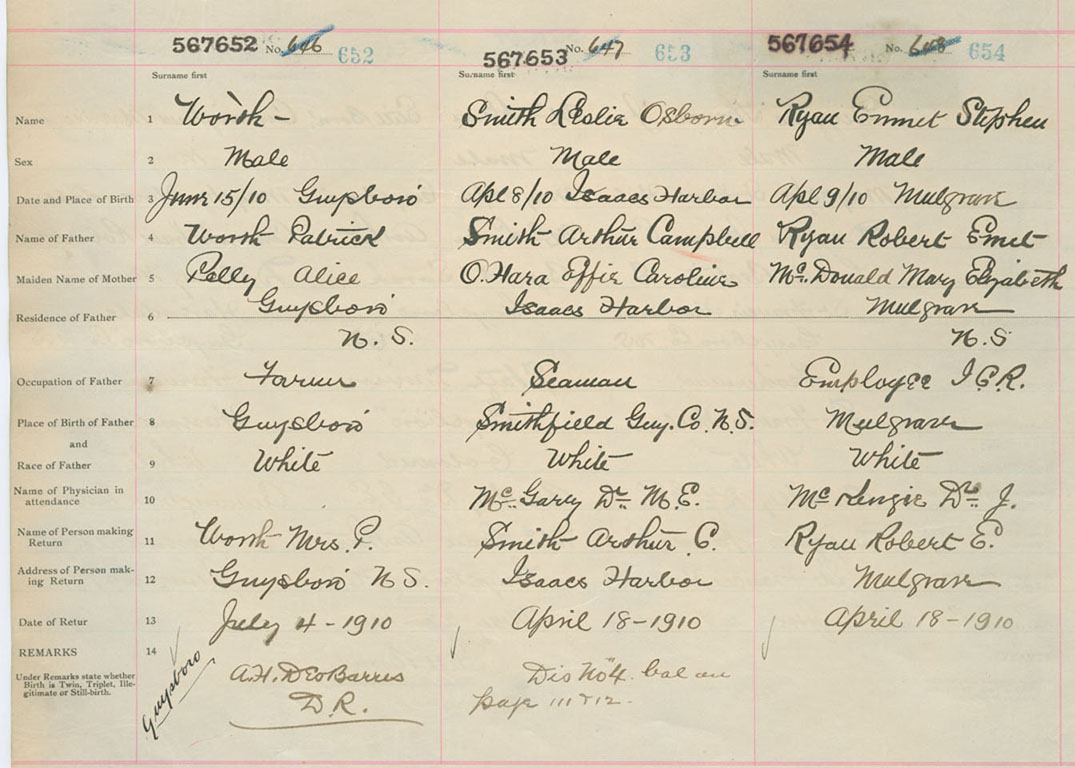 567652 No. 646 652 567653 No. 647 653 567654 No. 648 654
Surname first Surname first Surname first
Name 1 Worth - Smith Leslie Osborn Ryan Emmet Stephen
Sex 2 Male Male Male
Date and Place of Birth 3 June 15/10 Guysboro Apl 8/10 Isaacs Harbor Apl 9/10 Mulgrave
Name of Father 4 Worth Patrick Smith Arthur Campbell Ryan Robert Emet
Maiden Name of Mother 5 Pelly Alice O'Hara Effie Caroline Mc. Donald Mary Elizabeth
Residence of Father 6 Guysboro Isaacs Harbor Mulgrave
N.S. N.S
Occupation of Father 7 Farmer Seaman Employee I.C.R.
Place of Birth of Father 8 Guysboro Smithfield Guy. Co. N.S. Mulgrave
and
Race of Father 9 White White White
Name of Physician in
attendance 10 Mc Garry Dr. M.E. Mc Kenzie Dr. J.
Name of Person making
Return 11 Worth Mrs. P. Smith Arthur C. Ryan Robert E.
Address of Person mak-
ing Return 12 Guysboro N.S. Isaacs Harbor Mulgrave
Date of Retur 13 July 4 - 1910 April 18 - 1910 April 18 - 1910
REMARKS 14
Under Remarks state whether
Birth is Twin, Triplet, Ille-
gitimate or Still-birth.
Guysboro
A.H. DesBarres
D.R.
Dis No 4. bal on
page 111 & 112.